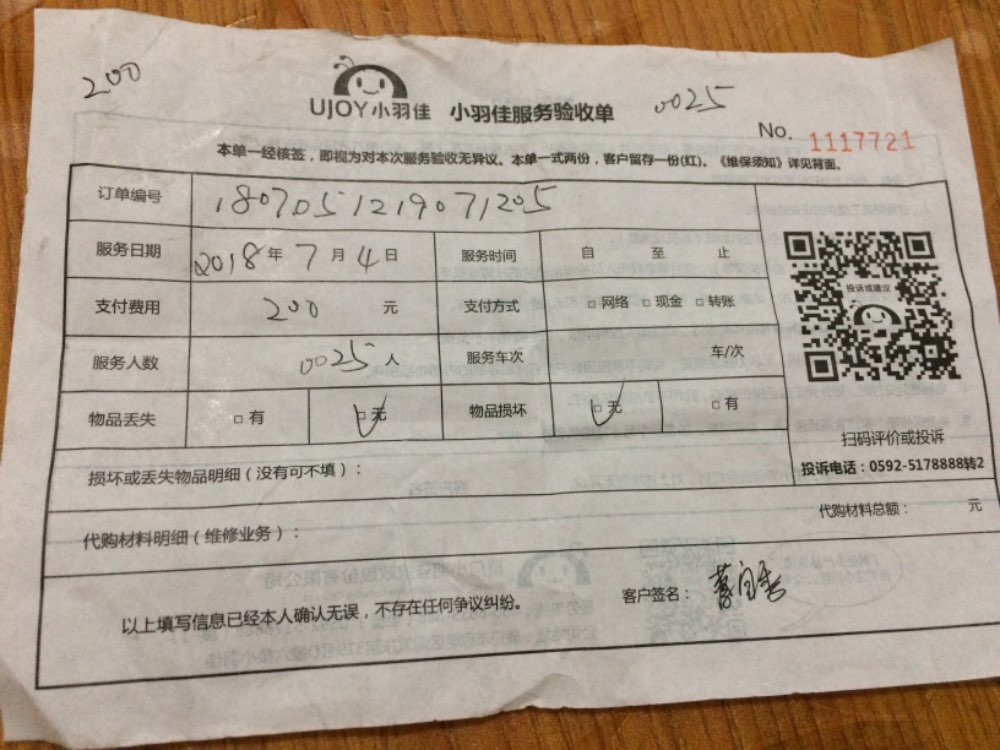 200
UJOY小羽佳 小羽佳服务验收单 0025
No. 1117721
本单一经核签，即视为对本次服务验收无异议。本单一式两份，客户留存一份(红)。《维保须知》详见背面。
订单编号 1807051219071205
服务日期 2018年7月4日 服务时间 自 至 止
支付费用 200 元 支付方式 □网络 □现金 □转账
服务人数 0025人 服务车次 车/次
物品丢失 □有 □无 物品损坏 □无 □有
投诉或建议
扫码评价或投诉
投诉电话：0592-5178888转2
损坏或丢失物品明细（没有可不填）：
代购材料明细（维修业务）： 代购材料总额： 元
以上填写信息已经本人确认无误，不存在任何争议纠纷。 客户签名：